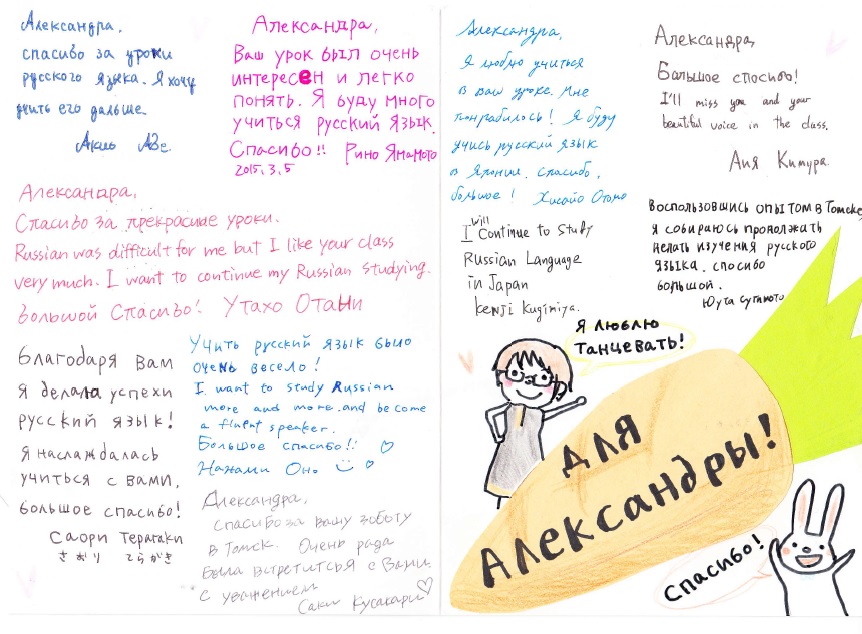 Александра,
спасибо за уроки
русского языка. Я хочу
учить его дальше.
Александра,
Ваш урок был очень
интересен и легко
понять. Я буду много
учиться русский язык.
Спасибо!! Рино Ямамото
2015.3.5
Александара,
Спасибо за прекрасные уроки.
Russian was difficult for me but I like your class
very much. I want to continue my Russian studying.
большой Спасибо! Утахо Отани
Благодаря Вам
я делала успехи
русский язык!
Я наслаждалась
учиться с вами,
большое спасибо!
Саори Терагаки
さおり てらがき
Учить русский язык было
очень весело!
I want to study Russian
more and more and become
a fluent speaker.
Большое спасибо!!
Нанами Оно
Александра,
спасибо за вашу заботу
в Томск. Очень рада
была встретиться с Вами.
с уважением
Саки Кусакари
Александра,
Я люблю учиться
в ваш уроке. Мне
понрабилось! Я буду
учись русский язык
в Японии. спасибо,
большое! Хисайо
Александра,
Балышое спосибо!
I'll miss you and your
beautiful voice in the class.
Ая Кимура.
I will Continue to Study
Russian Language
in Japan
Kenji Kugimiya.
Воспользовшись опытом в Томске,
я собираюсь продолжать
делать изучения русского
языка. спосибо
большой.
Юута Сугимото
Я люблю
танчевать!
для
Александры!
Спасибо!